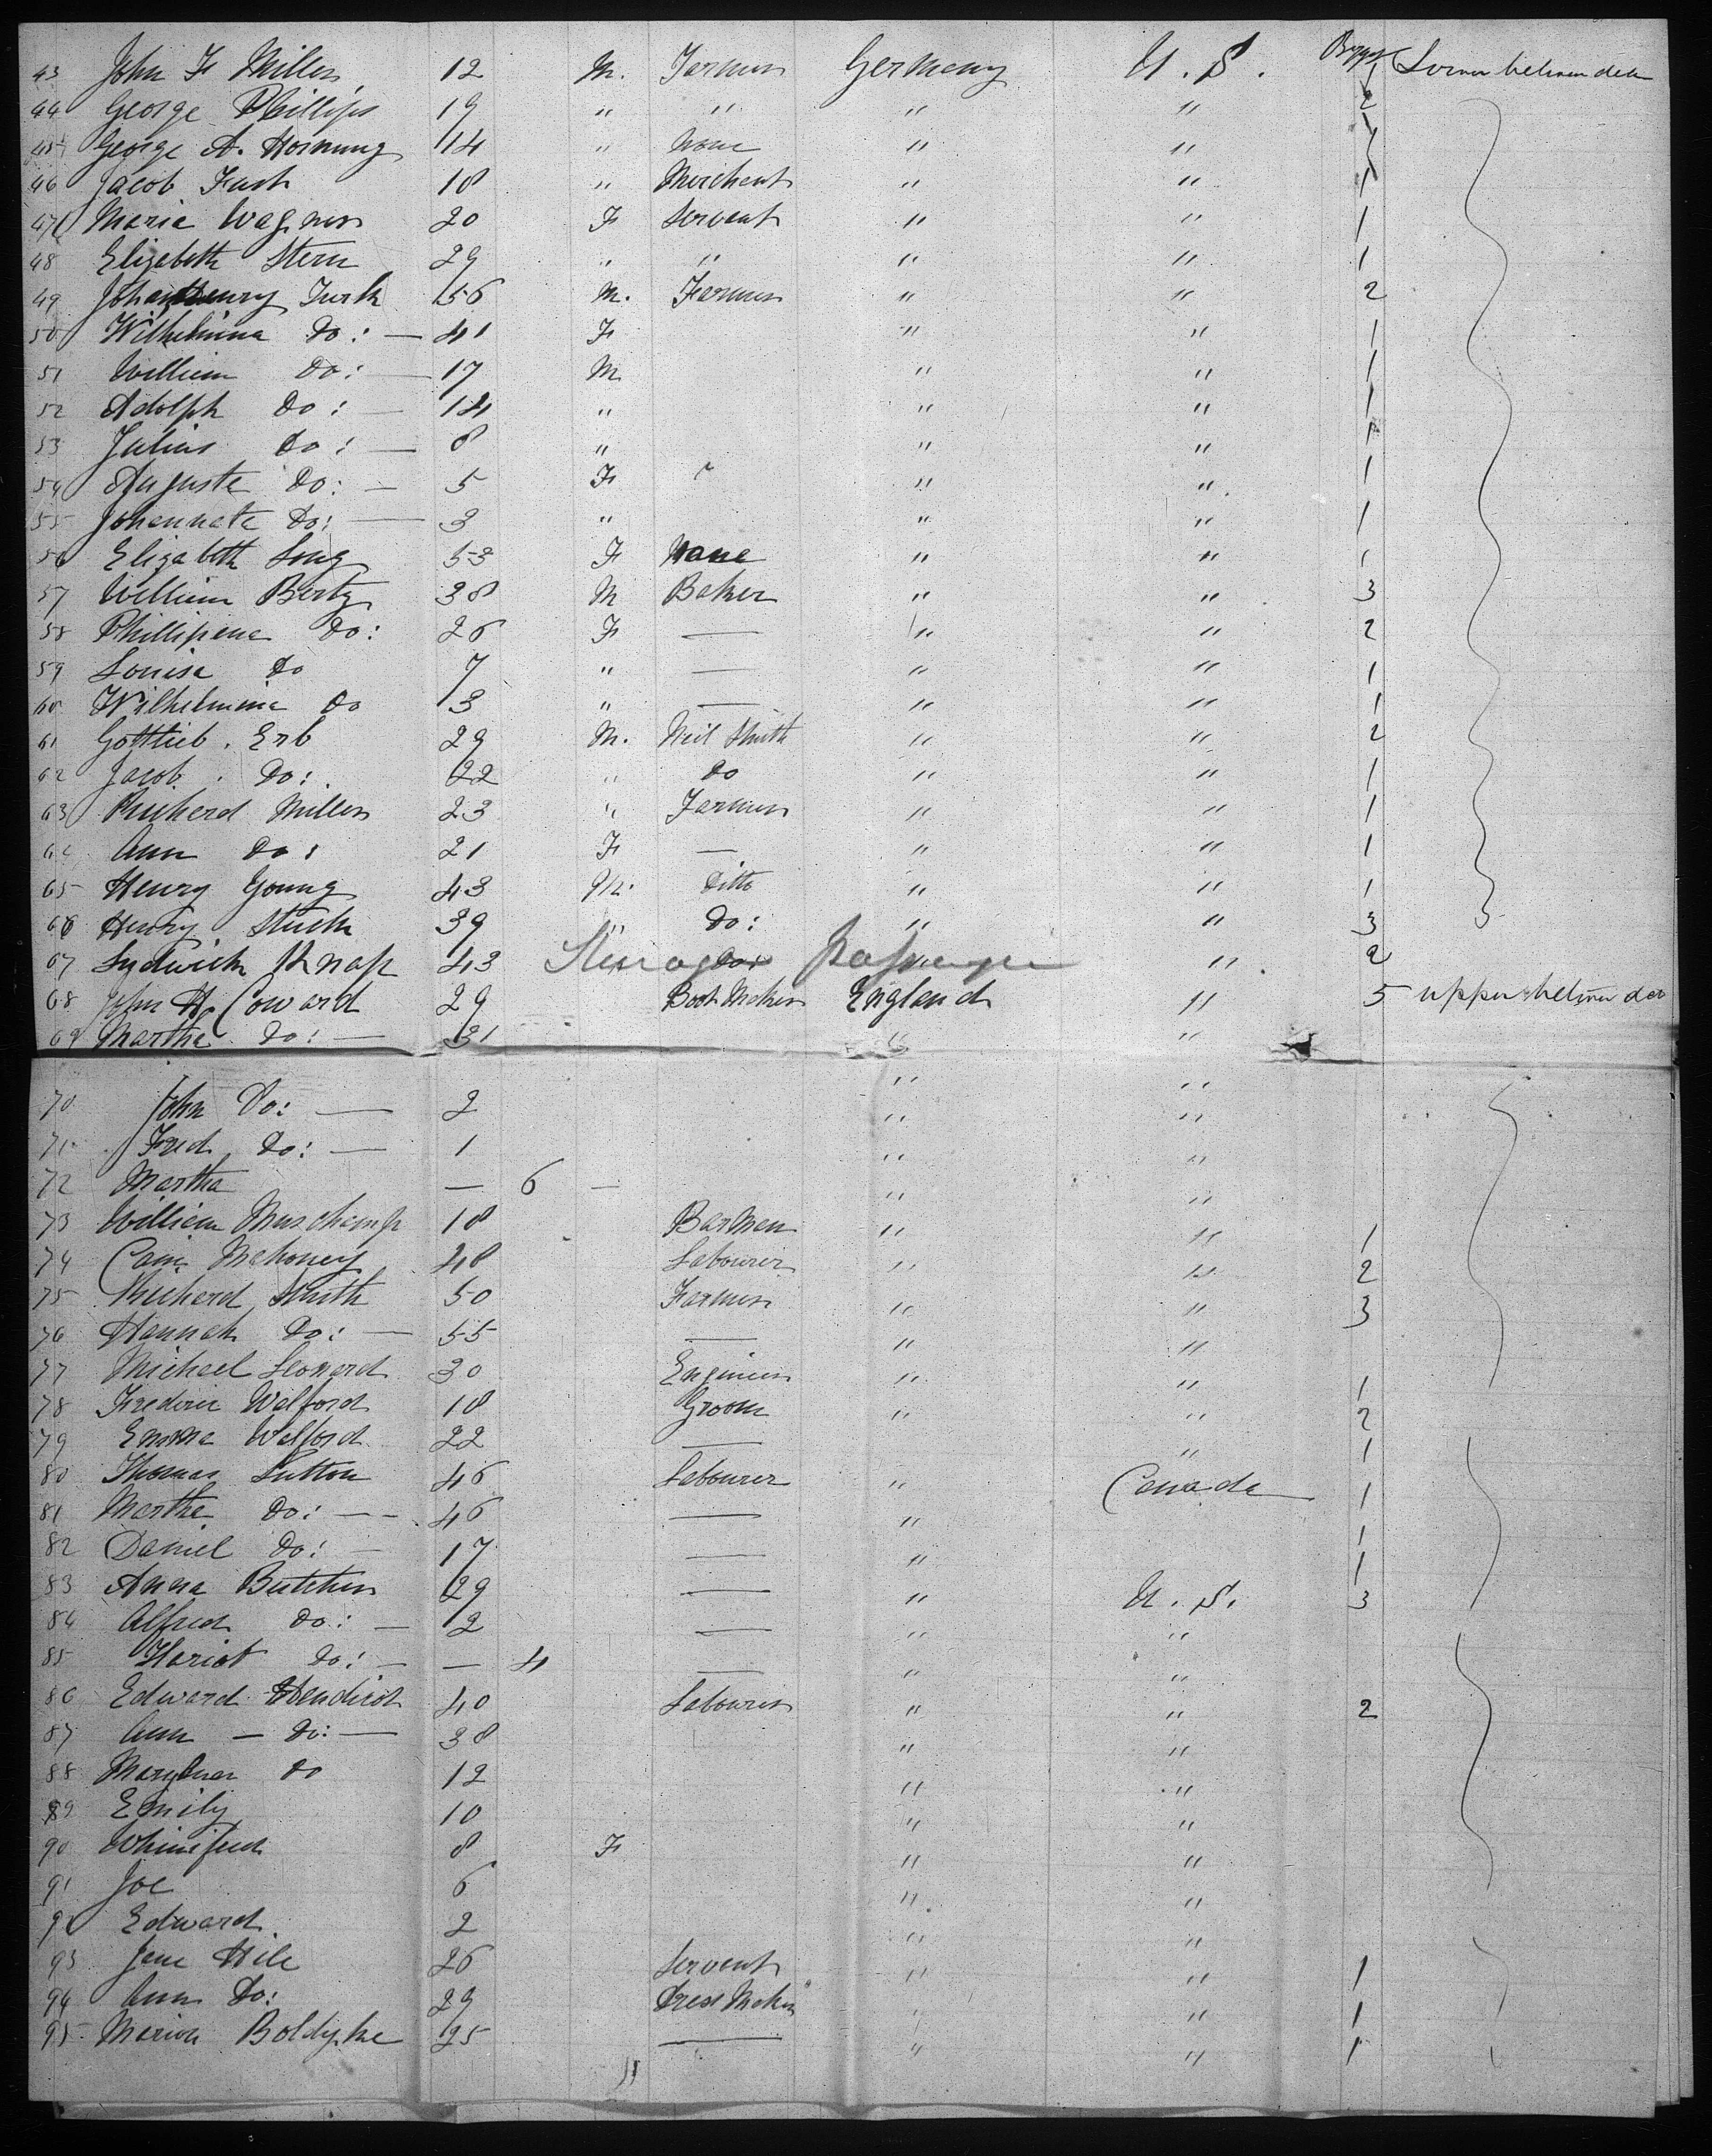 Bgge
43 John F Miller 12 M. Farmer Germany U. S. 1 Lower between deck
44 George Phillips 19 " " " " 2
45 George A. Hornung 14 " None " " 1
46 Jacob Fush 18 " Merchant " " 1
47 Maria Wagner 20 F Servant " " 1
48 Elizabeth Stern 29 " " " " 1
49 Johan Henry Turk 56 M. Farmer " " 2
50 Wilhelmina Do: — 41 F " " 1
51 William Do: — 17 M " " 1
52 Adolph Do: — 14 " " " 1
53 Julius Do: — 8 " " " 1
54 Auguste Do: — 5 F " " 1
55 Johannata Do: — 3 " " " 1
56 Elizabeth Long 53 F None " " 1
57 William Bertz 38 M Baker " " 3
58 Phillipena Do: 26 F — " " 2
59 Louisa Do 7 " — " " 1
60 Wilhelmina Do 3 " — " " 1
61 Gottlieb. Erb 29 M. Smith " " 2
62 Jacob. Do: 22 " Do " " 1
63 Richard Miller 23 " Farmer " " 1
64 Ann Do: 21 F — " " 1
65 Henry Young 43 M. Ditto " " 1
66 Henry 39 " Do: " " 3
67 Knap 43 Steerage Passenger " 2
68 John H. Coward 29 Boot Maker England " 5 upper between deck
69 Martha Do: — 31 " "
70 John Do: — 2 " "
71 Fred Do: — 1 " "
72 Martha — 6 — " "
73 William Muschamp 18 Barman " " 1
74 Mahoney 48 Labourer " " 2
75 Richard Smith 50 Farmer " " 3
76 Hannah Do: — 55 — " "
77 Michael Leonard 30 Engineer " " 1
78 Frederic Welford 18 Groom " " 2
79 Emma Welford 22 — " 1
80 Thomas Sutton 46 Labourer " Canada 1
81 Martha Do: — 46 — " 1
82 Daniel Do: — 17 — " 1
83 Anna Butcher 29 — " U. S. 3
84 Alfred Do: — 2 — " "
85 Hariot Do: — — 4 — " "
86 Edward Hendicot 40 Labourer " " 2
87 Ann — Do: — 38 " "
88 Maryann Do 12 " "
89 Emily 10 " "
90 8 F " "
91 Joe 6 " "
92 Edward 2 " "
93 Jane Hile 26 Servant " " 1
94 Ann Do: 29 Dress Maker " " 1
95 Maria 25 — " " 1